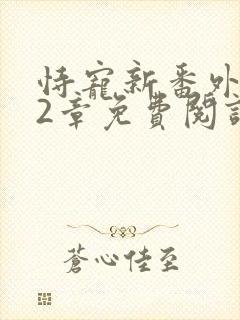 恃寵新番外
2章免費閱讀
蒼心佳至